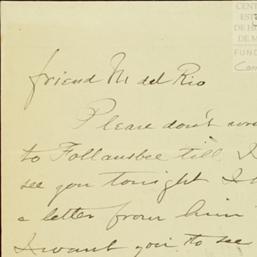 CENT
EST
DE H
DE M
FUND
Con
friend M del Rio
Please don't
to Follansbee till I
see you tonight I
a letter from him
I want you to see